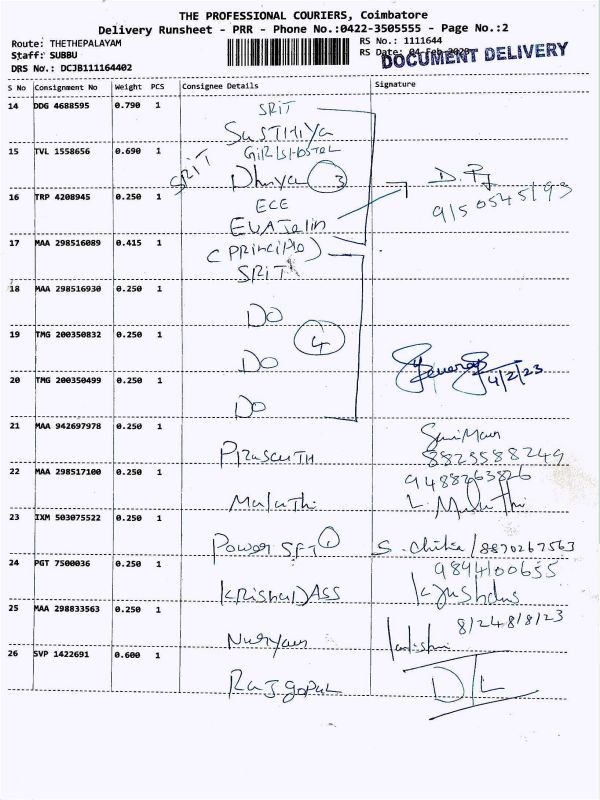 THE PROFESSIONAL COURIERS, Coimbatore
Delivery Runsheet - PRR - Phone No.:0422-3505555 - Page No.:2
Route: THETHEPALAYAM
Staff: SUBBU
DRS No.: DCJB111164402
RS No.: 1111644
RS Date:
DOCUMENT DELIVERY
S No Consignment No Weight PCS Consignee Details Signature
14 DDG 4688595 0.790 1 SRIT
SuSTHiYa
15 TVL 1558656 0.690 1 GIRLS HOSTEL
SRIT Dhivya 3
16 TRP 4208945 0.250 1 ECE
EVAJelin
17 MAA 298516089 0.415 1 (Principle)
SRIT
18 MAA 298516930 0.250 1
DO
19 TMG 200350832 0.250 1 4
DO 4/2/23
20 TMG 200350499 0.250 1
DO
21 MAA 942697978 0.250 1
PraSanTH 8825588249
22 MAA 298517100 0.250 1 9488263826
Malathi L. Malathi
23 IXM 503075522 0.250 1
Power SFT 1 S. chitra/8870267563
24 PGT 7500036 0.250 1 9894100655
KRishnDASS
25 MAA 298833563 0.250 1
26 SVP 1422691 0.600 1
RaJgopal D/L